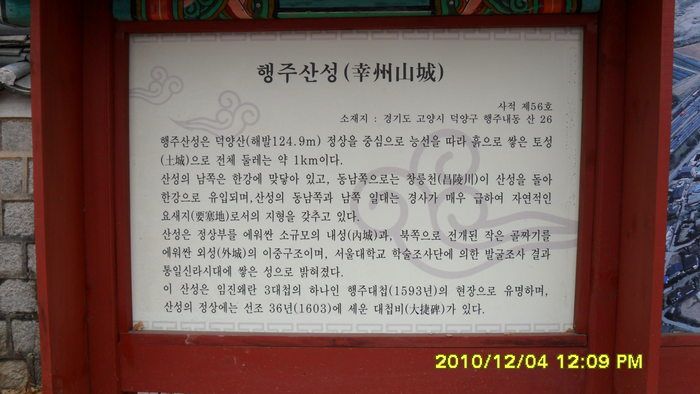 행주산성(幸州山城)
사적 제56호
소재지 : 경기도 고양시 덕양구 행주내동 산 26
행주산성은 덕양산(해발124.9m) 정상을 중심으로 능선을 따라 흙으로 쌓은 토성
(土城)으로 전체 둘레는 약 1km이다.
산성의 남쪽은 한강에 맞닿아 있고, 동남쪽으로는 창릉천(昌陵川)이 산성을 돌아
한강으로 유입되며, 산성의 동남쪽과 남쪽 일대는 경사가 매우 급하여 자연적인
요새지(要塞地)로서의 지형을 갖추고 있다.
산성은 정상부를 에워싼 소규모의 내성(內城)과, 북쪽으로 전개된 작은 골짜기를
에워싼 외성(外城)의 이중구조이며, 서울대학교 학술조사단에 의한 발굴조사 결과
통일신라시대에 쌓은 성으로 밝혀졌다.
이 산성은 임진왜란 3대첩의 하나인 행주대첩(1593년)의 현장으로 유명하며,
산성의 정상에는 선조 36년(1603)에 세운 대첩비(大捷碑)가 있다.
2010/12/04 12:09 PM